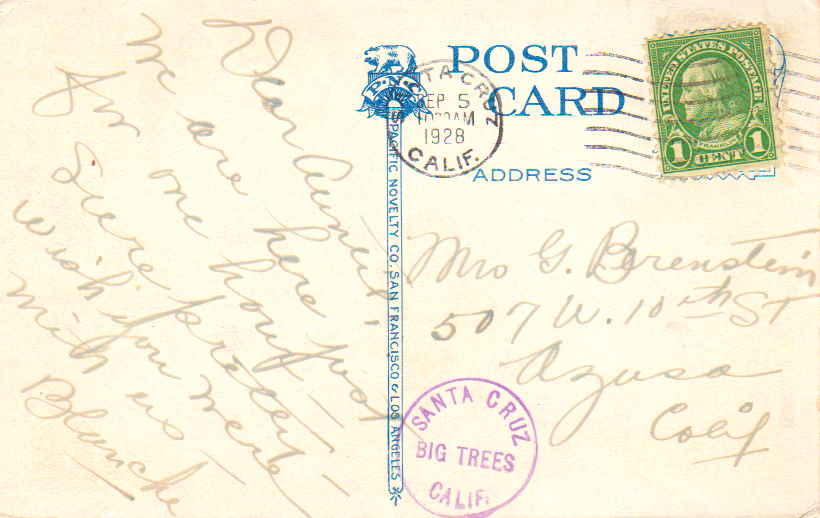 POST
CARD
ADDRESS
P.N.C.
PACIFIC NOVELTY CO. SAN FRANCISCO & LOS ANGELES
SANTA CRUZ
SEP 5
AM
1928
CALIF.
UNITED STATES POSTAGE
FRANKLIN
1 CENT 1
Dear
We are here
for one hour
pretty –
wish you were
with us –
Blanche
Mrs G. Berenstein
507 W. 10th St
Azusa
Calif
SANTA CRUZ
BIG TREES
CALIF.